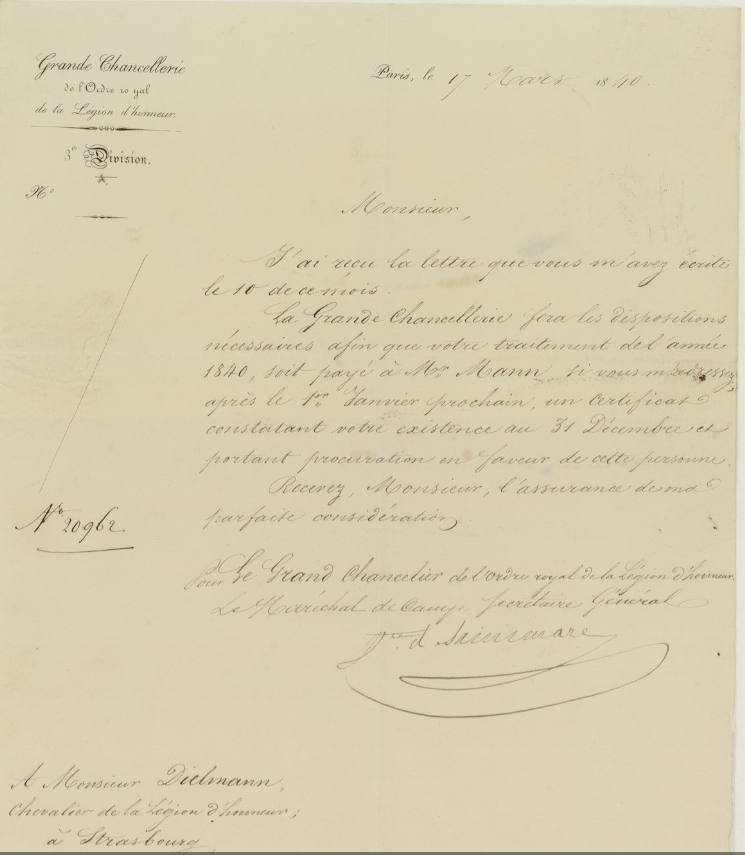 Grande Chancellerie
de l'Ordre royal
de la Légion d'honneur.
3e Division.
No
Paris, le 17 Mars 1840.
Monsieur,
J'ai reçu la lettre que vous m'avez écrite
le 10 de ce mois.
La Grande Chancellerie fera les dispositions
nécessaires afin que votre traitement de l'année
1840, soit payé à Mr. Mann, si vous m'adressez,
après le 1er Janvier prochain, un certificat
constatant votre existence au 31 Décembre et
portant procuration en faveur de cette personne.
Recevez, Monsieur, l'assurance de ma
parfaite considération.
No 20962
Pour Le Grand Chancelier de l'ordre royal de la Légion d'honneur.
Le Maréchal de Camp, Secrétaire Général
A Monsieur Dielmann,
Chevalier de la Légion d'honneur;
à Strasbourg.